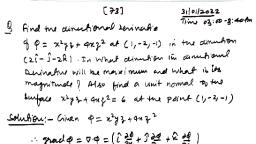 [73]
31/01/2022
Time 03:00-3:40pm
Q Find the directional derivative
of φ = x²yz + 4xz² at (1,-2,-1) in the direction
(2î - ĵ - 2k̂). In what direction the directional
Derivative will be maximum and what is its
magnitude? Also find a unit normal to the
surface x²yz + 4xz² = 6 at the point (1,-2,-1)
Solution:- Given φ = x²yz + 4xz²
∴ grad φ = ∇φ = (î ∂φ/∂x + ĵ ∂φ/∂y + k̂ ∂φ/∂z)